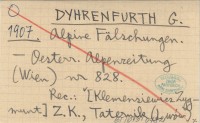 DYHRENFURTH G.
1907. Alpine Fälschungen.
— Oesterr. Alpenzeitung
(Wien) nr 828.
Rec.: "[Klemensiewicz Zyg-
munt] Z.K., Taternik